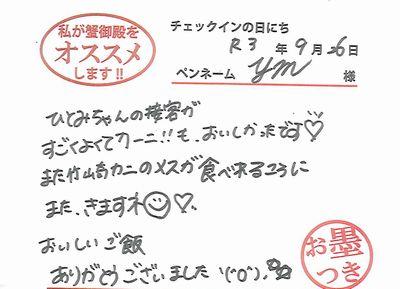 私が蟹御殿を
オススメ
します!!
チェックインの日にち
R3年9月26日
ペンネーム ym 様
ひとみちゃんの接客が
すごくよくてカーニ!!も、おいしかったです♡
また竹崎カニのメスが食べれるころに
また、きますネ☺♡.
おいしいご飯
ありがとうございました
お墨
つき